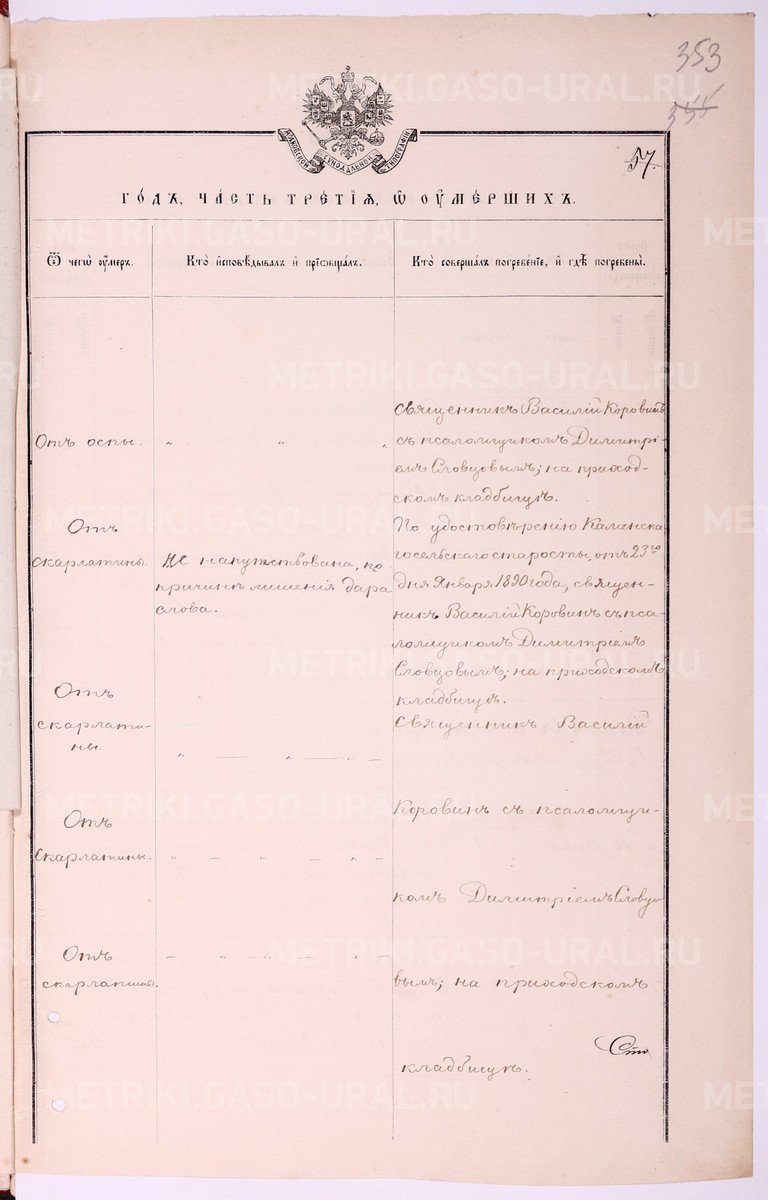 353
355
57.
МОСКОВСКОЙ СѴНОДАЛЬНОЙ ТИПОГРАФІИ
ГО́ДЪ, ЧА́СТЬ ТРЕ́ТІѦ, Ѽ ОУ҆МЕ́РШИХЪ.
Ѿ чегѡ̀ оу҆́меръ.
Кто̀ и҆сповѣ́дывалъ и҆ приѻбща́лъ.
Кто̀ соверша́лъ погребе́нїе, и҆ гдѣ̀ погребены̀.
Отъ оспы.
" " "
Священникъ Василій Коровинъ
съ псаломщикомъ Димитрі-
емъ Словцовымъ; на приход-
скомъ кладбищѣ.
Отъ
скарлатины.
Не напутствована, по
причинѣ лишенія дара
слова.
По удостовѣренію Каменска
го сельскаго старосты, отъ 23го
дня Января 1890 года, священ-
никъ Василій Коровинъ съ пса-
ломщикомъ Димитріемъ
Словцовымъ; на приходскомъ
кладбищѣ.
Отъ
скарлати-
ны.
" — " — " —
Священникъ Василій
Отъ
скарлатины.
" — " — " —
Коровинъ съ псаломщи-
комъ Димитріемъ Словцо
Отъ
скарлатины.
— " — " — " —
вымъ; на приходскомъ
кладбищѣ.
METRIKI.GASO-URAL.RU